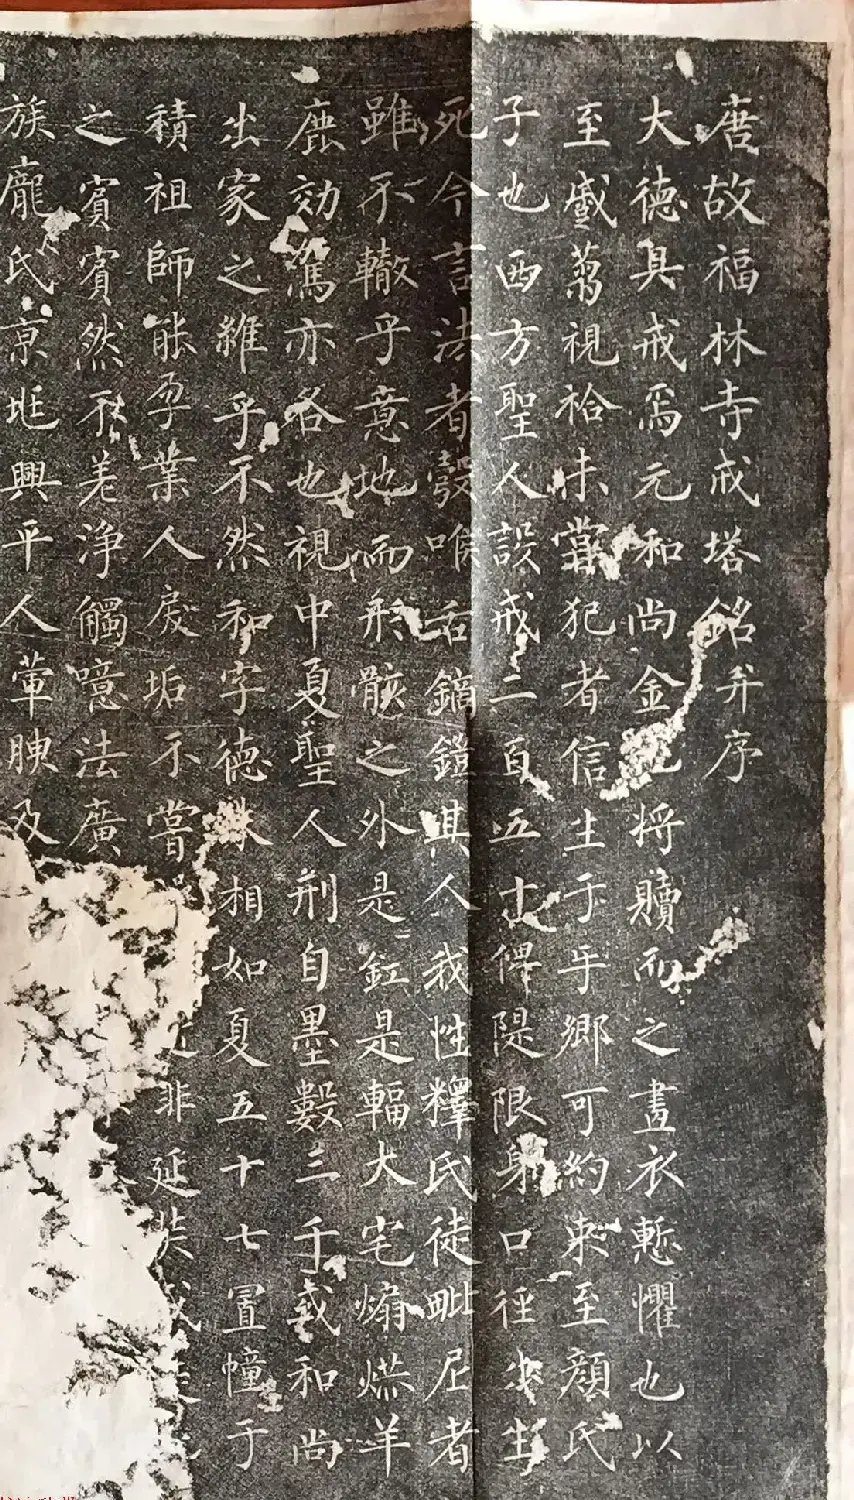 唐故福林寺戒塔銘并序
大德具戒焉元和尚金將贖而之畫衣慙懼也以
至戲蒭視袷未嘗犯者信生于乎鄉可約束至顏氏
子也西方聖人設戒二百五十俾隄限身口徑出生
死今言法者彀喉舌鏑鎧其人我性釋氏徒毗尼者
雖不轍乎意地而形骸之外是釭是輻大宅煽燕羊
鹿効駕亦各也視中夏聖人刑自墨數三千或和尚
出家之維乎不然和字德殊相如夏五十七置幢于
積祖師能孕業人戾垢不嘗非延奘
之賓賓然不羌淨觸噫法廣
族龐氏京兆興平人葷腴及